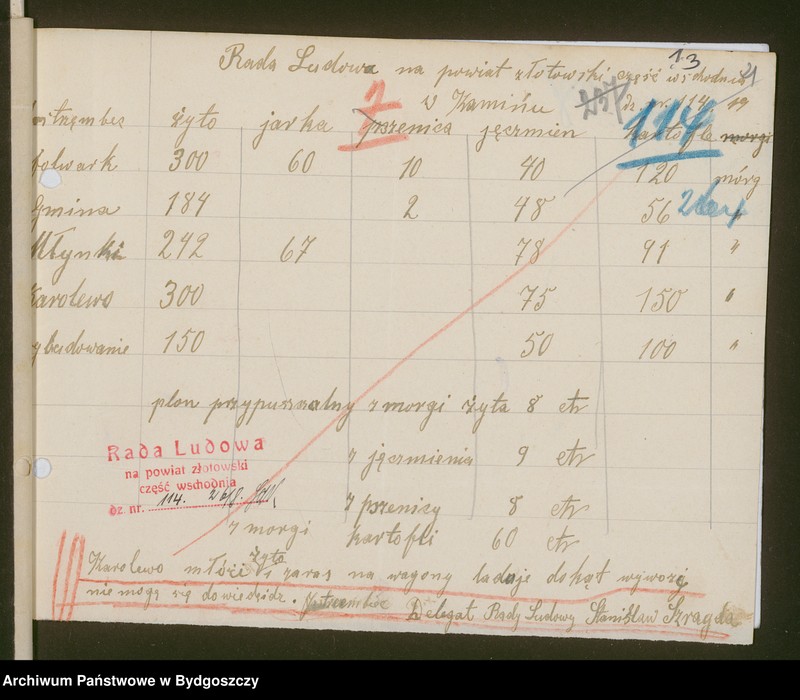 13
Rada Ludowa na powiat złotowski część wschodnia 21
w Kamińu 237 dz. nr. 114 19
114
żyto jarka pszenica jęczmien kartofle morgi
folwark 300 60 10 40 120 mórg
Gmina 184 2 48 56 "
Młynki 242 67 78 91 "
Karolewo 300 75 150 "
ybudowanie 150 50 100 "
plon przypuszalny z morgi żyta 8 ctr
z jęczmienia 9 ctr
z pszenicy 8 ctr
z morgi kartofli 60 ctr
Rada Ludowa
na powiat złotowski
część wschodnia
dz. nr. 114. 26/8.
Karolewo młóci żyto i zaras na wagony laduje dokąt wywozę
nie mogę się dowiedzidz. Jastrzembiec Delegat Rady Ludowy Stanisław Szragda
Archiwum Państwowe w Bydgoszczy